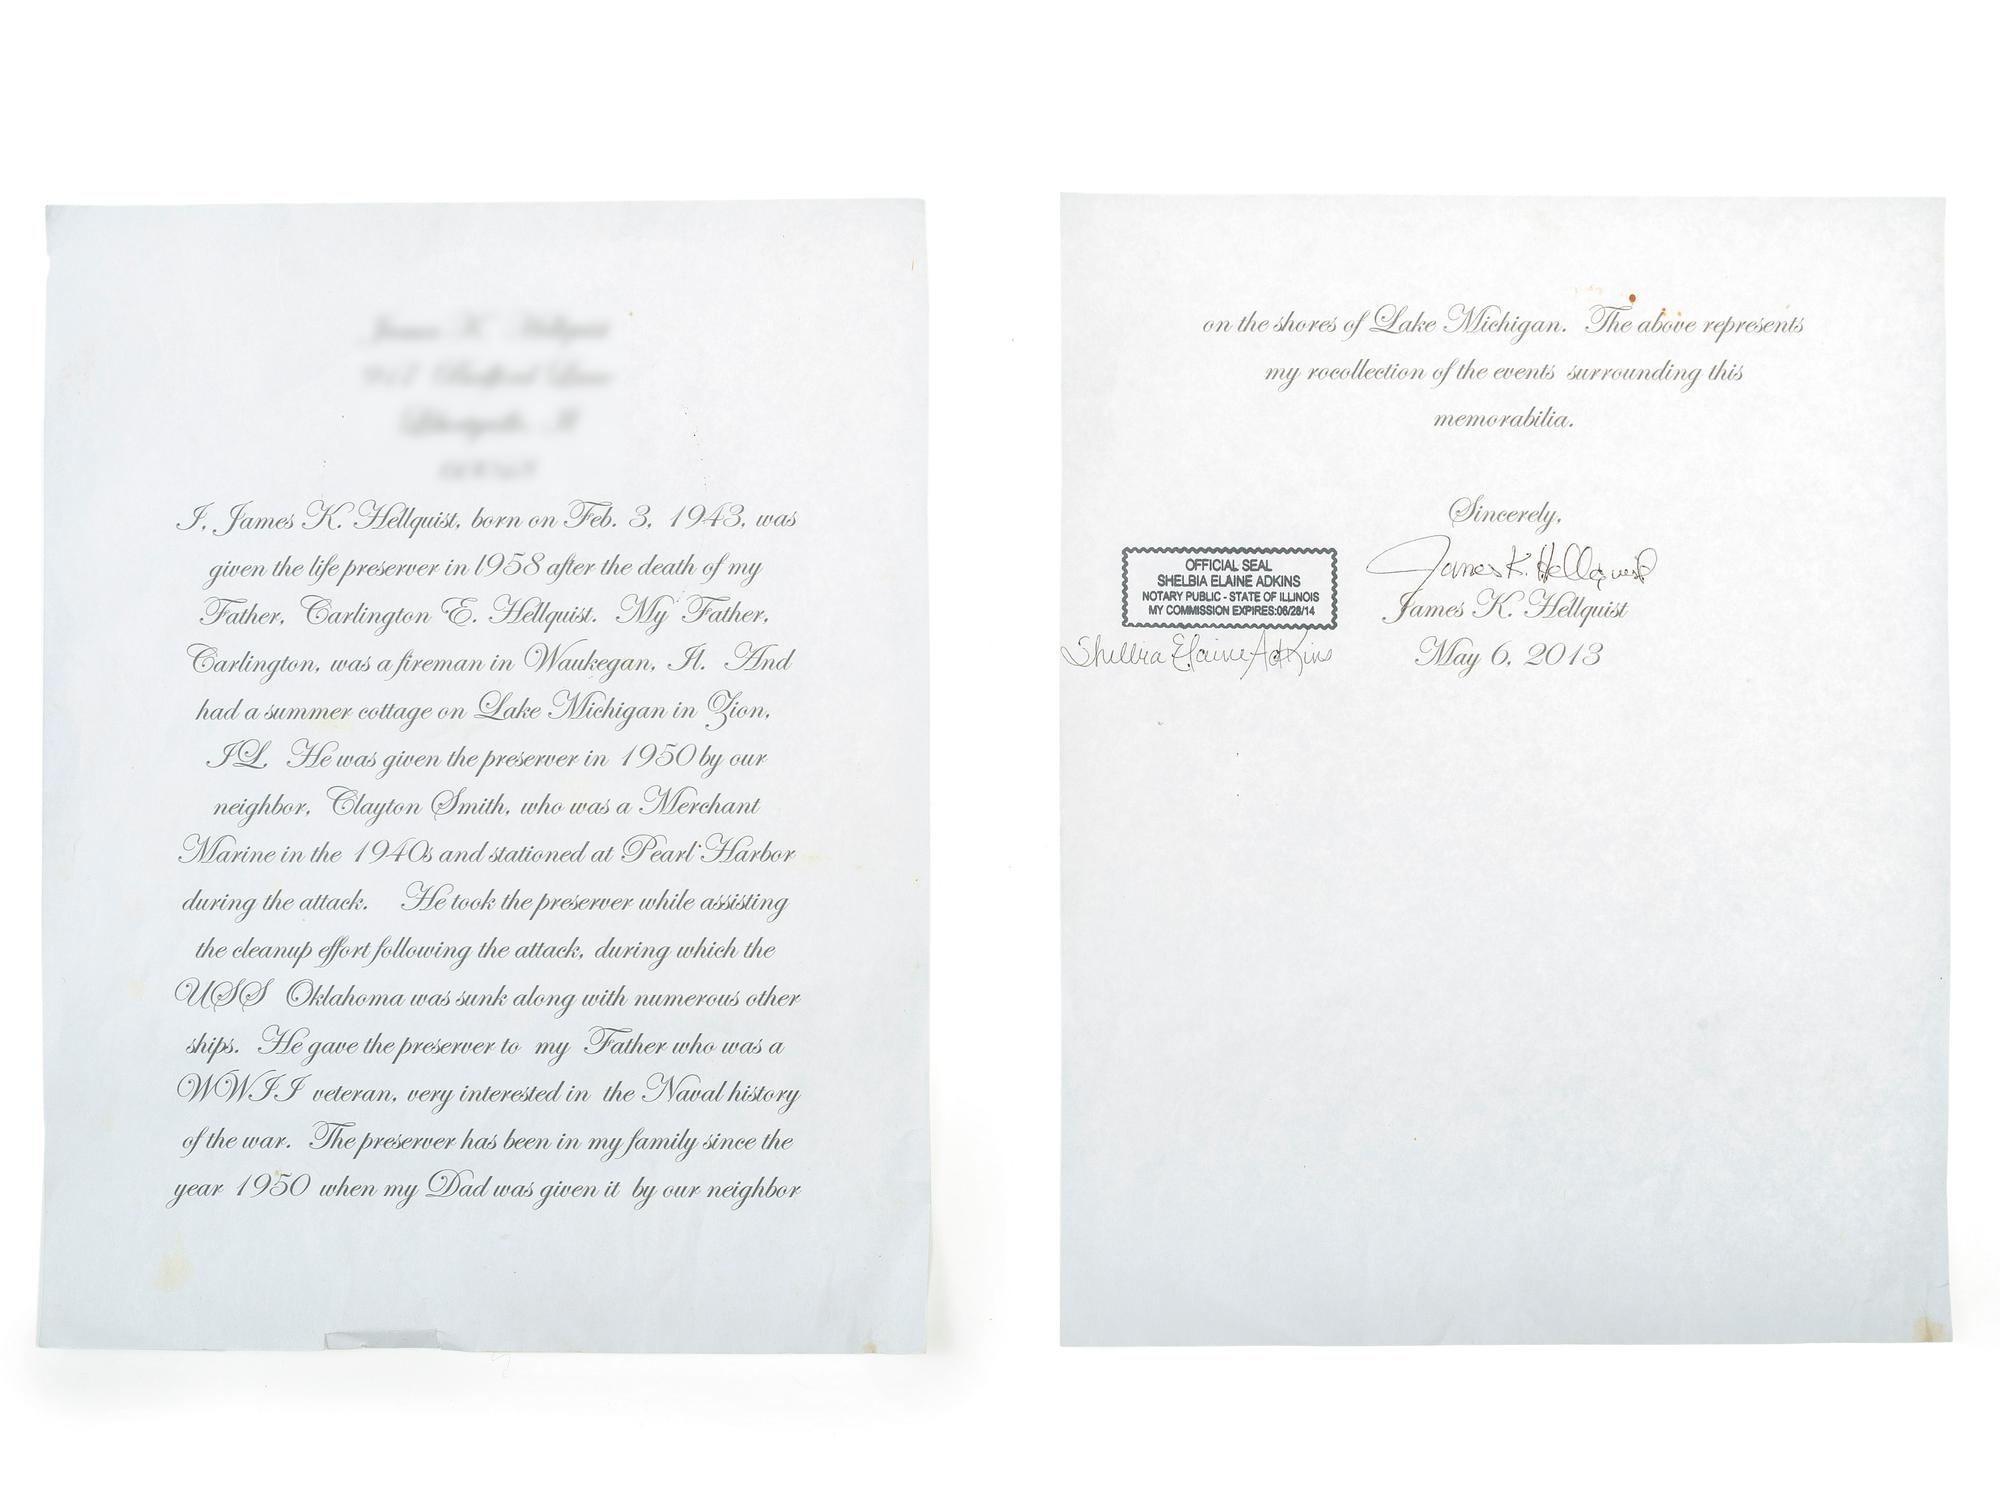 I, James K. Hellquist, born on Feb. 3, 1943, was
given the life preserver in 1958 after the death of my
Father, Carlington E. Hellquist. My Father,
Carlington, was a fireman in Waukegan, Il. And
had a summer cottage on Lake Michigan in Zion,
IL. He was given the preserver in 1950 by our
neighbor, Clayton Smith, who was a Merchant
Marine in the 1940s and stationed at Pearl Harbor
during the attack. He took the preserver while assisting
the cleanup effort following the attack, during which the
USS Oklahoma was sunk along with numerous other
ships. He gave the preserver to my Father who was a
WWII veteran, very interested in the Naval history
of the war. The preserver has been in my family since the
year 1950 when my Dad was given it by our neighbor
on the shores of Lake Michigan. The above represents
my rocollection of the events surrounding this
memorabilia.
Sincerely,
James K. Hellquist
James K. Hellquist
May 6, 2013
OFFICIAL SEAL
SHELBIA ELAINE ADKINS
NOTARY PUBLIC - STATE OF ILLINOIS
MY COMMISSION EXPIRES:06/28/14
Shelbia Elaine Adkins